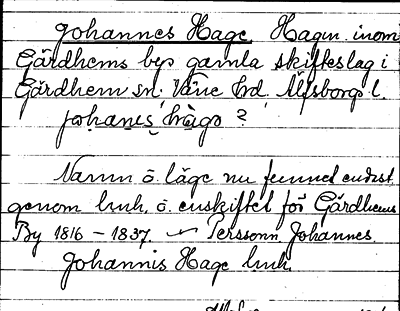 Johannes Hage Hagen inom
Gärdhems bys gamla skifteslag i
Gärdhem sn. Väne hd. Älfsborgs l.
johanes hago ?
Namn o. läge nu funnet endast
genom lmh. o. enskiftet för Gärdhems
By 1816 – 1837. Perssonn Johannes
Johannis Hage lmh.